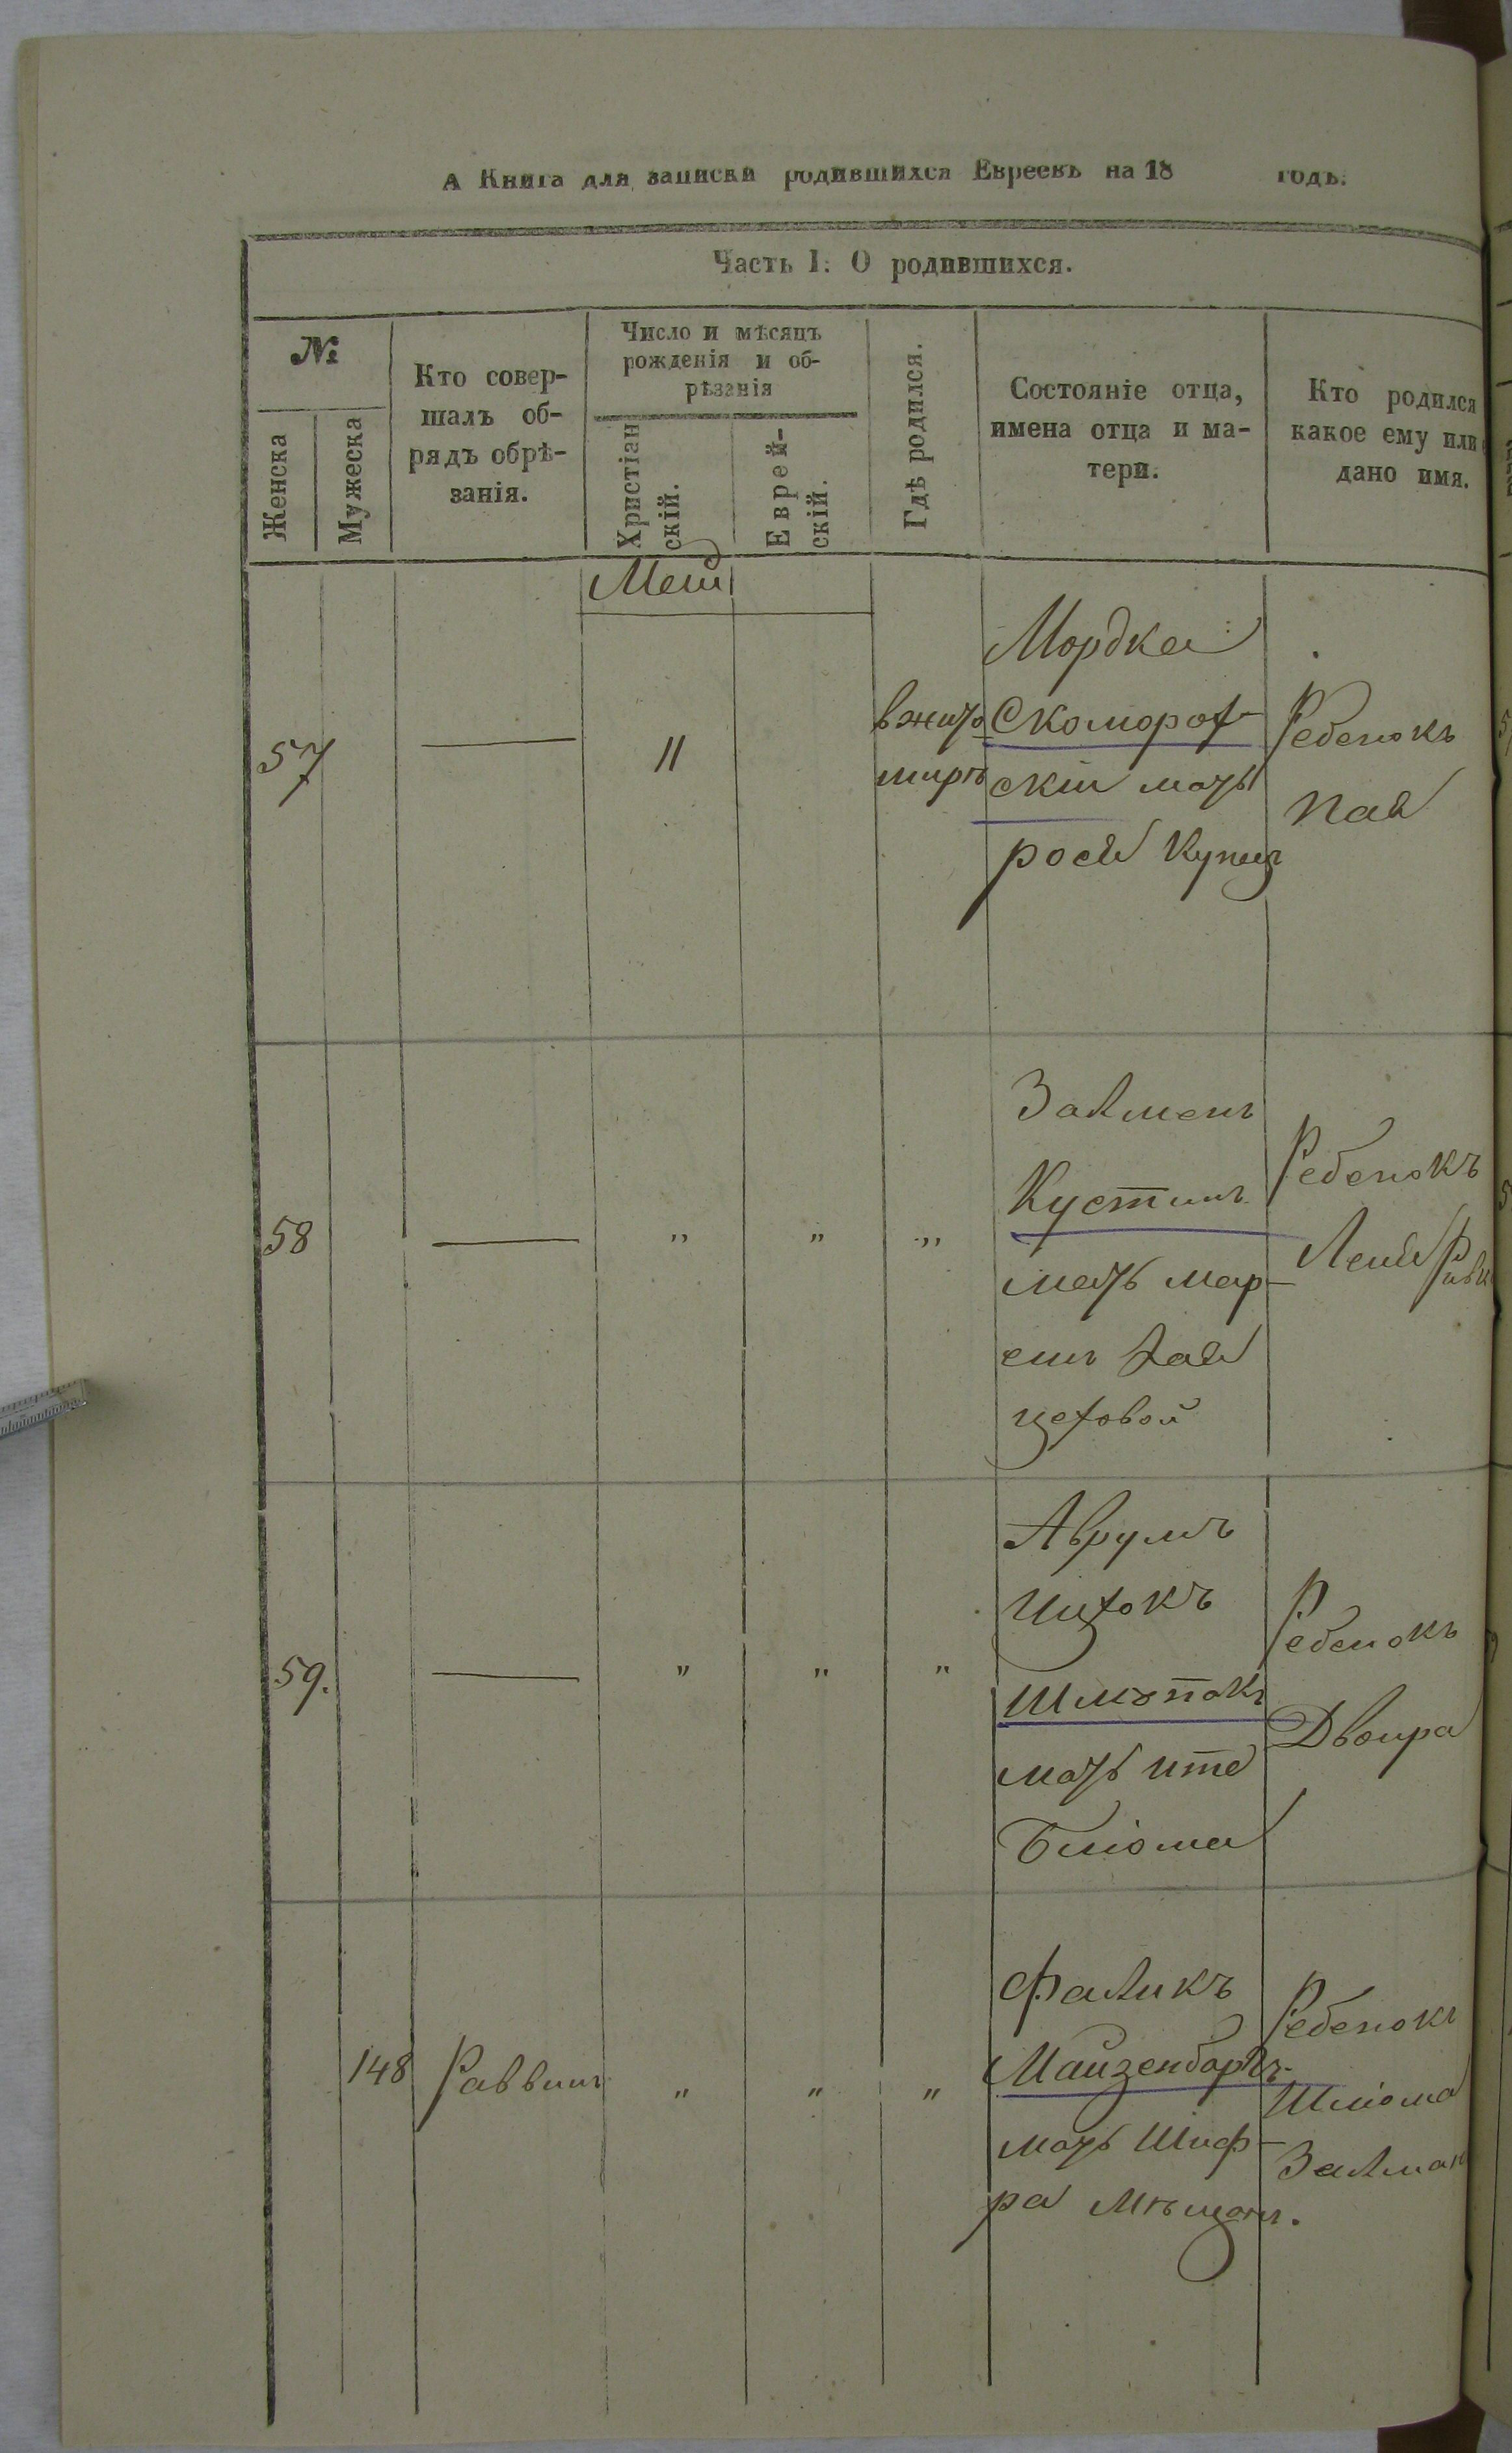 А Книга для записки родившихся Евреевъ на 18 годъ.
Часть I. О родившихся.
№
Женска
Мужеска
Кто совер-
шалъ об-
рядъ обрѣ-
занія.
Число и мѣсяцъ
рожденія и об-
рѣзанія
Христіан
скій.
Еврей-
скій.
Гдѣ родился.
Состояніе отца,
имена отца и ма-
тери.
Кто родился
какое ему или
дано имя.
Май
57
—
11
в жито
мирѣ
Мордка
Скомороф
скій мать
рося Купец
Ребенокъ
58
—
"
"
"
Залменъ
Кустинъ
мать мар-
емъ хая
цеховой
Ребенокъ
Рив
59.
—
"
"
"
Аврумъ
Ицхокъ
мать ите
Блюма
Ребенокъ
Двойра
148
Раввинъ
"
"
"
Фаликъ
Майзенбергъ
мать Шиф-
ра Мѣщан.
Ребенокъ
Шлiома
Залман